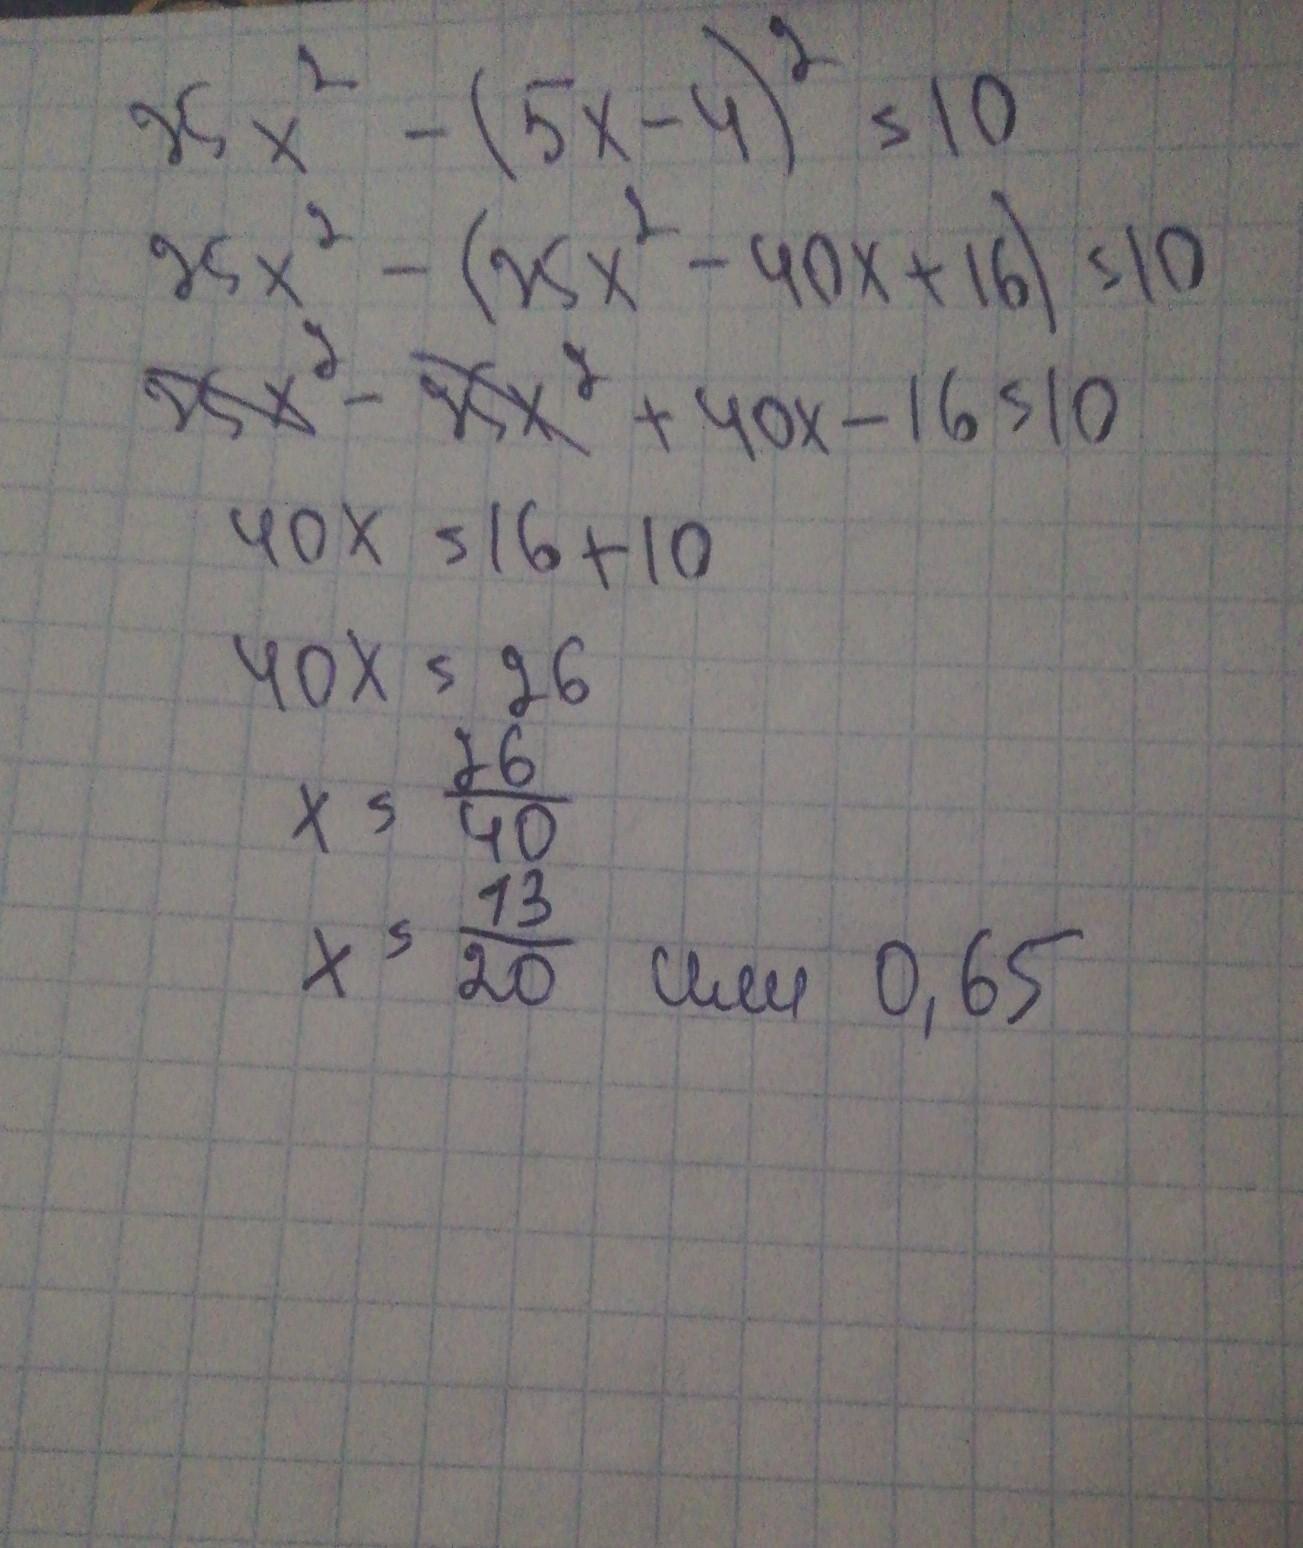 25x² - (5x - 4)² = 10
25x² - (25x² - 40x + 16) = 10
25x² - 25x² + 40x - 16 = 10
40x = 16 + 10
40x = 26
x = 26/40
x = 13/20 или 0,65